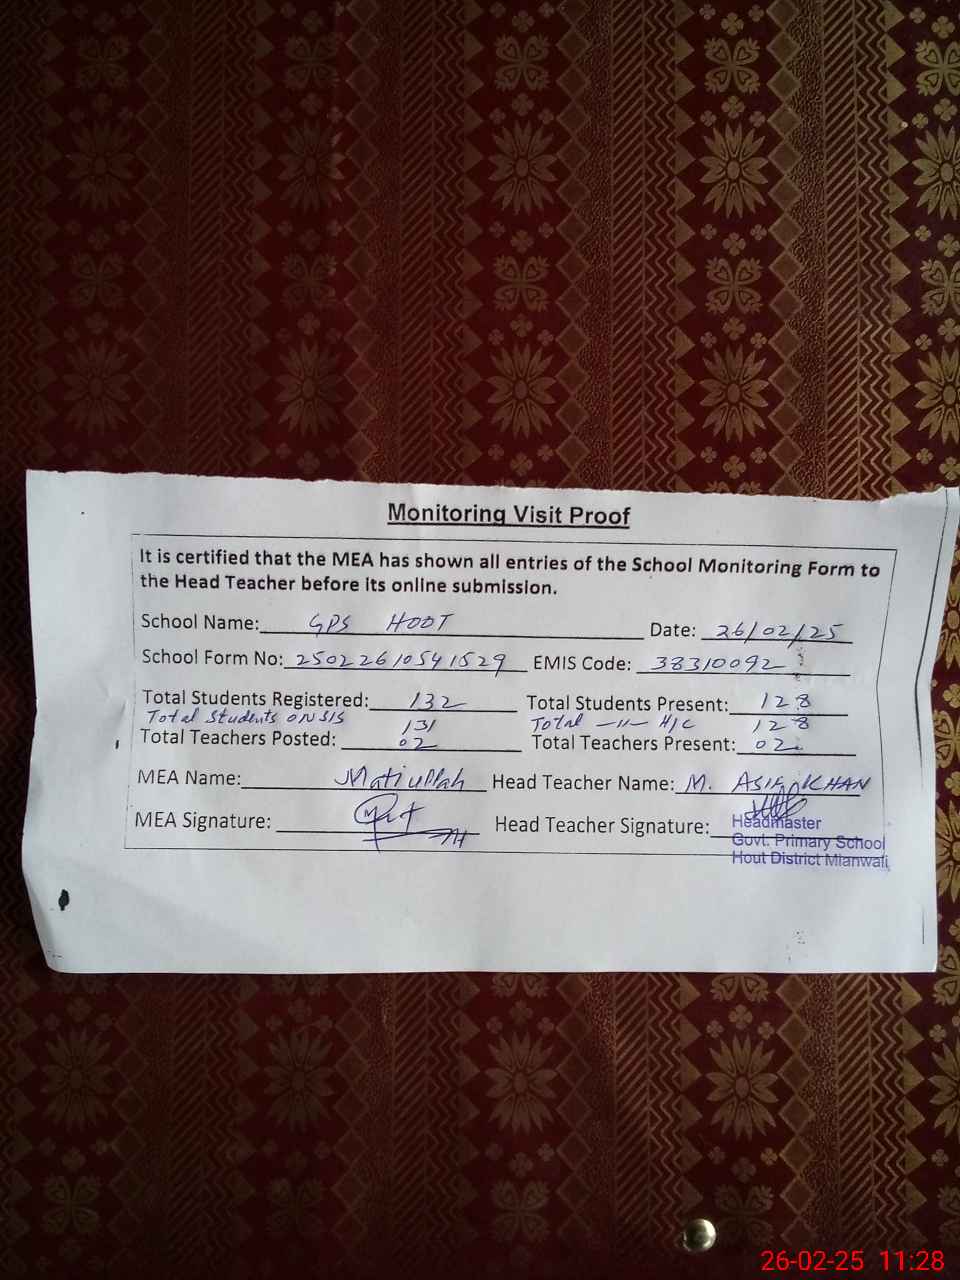 Monitoring Visit Proof
It is certified that the MEA has shown all entries of the School Monitoring Form to
the Head Teacher before its online submission.
School Name: GPS HOOT Date: 26/02/25
School Form No: 25022610541529 EMIS Code: 38310092
Total Students Registered: 132 Total Students Present: 128
Total Students ON SIS 131 Total —11— H/C 128
Total Teachers Posted: 02 Total Teachers Present: 02
MEA Name: Matiullah Head Teacher Name: M. ASIF KHAN
MEA Signature: Head Teacher Signature:
Headmaster
Govt. Primary School
Hout District Mianwali
26-02-25 11:28